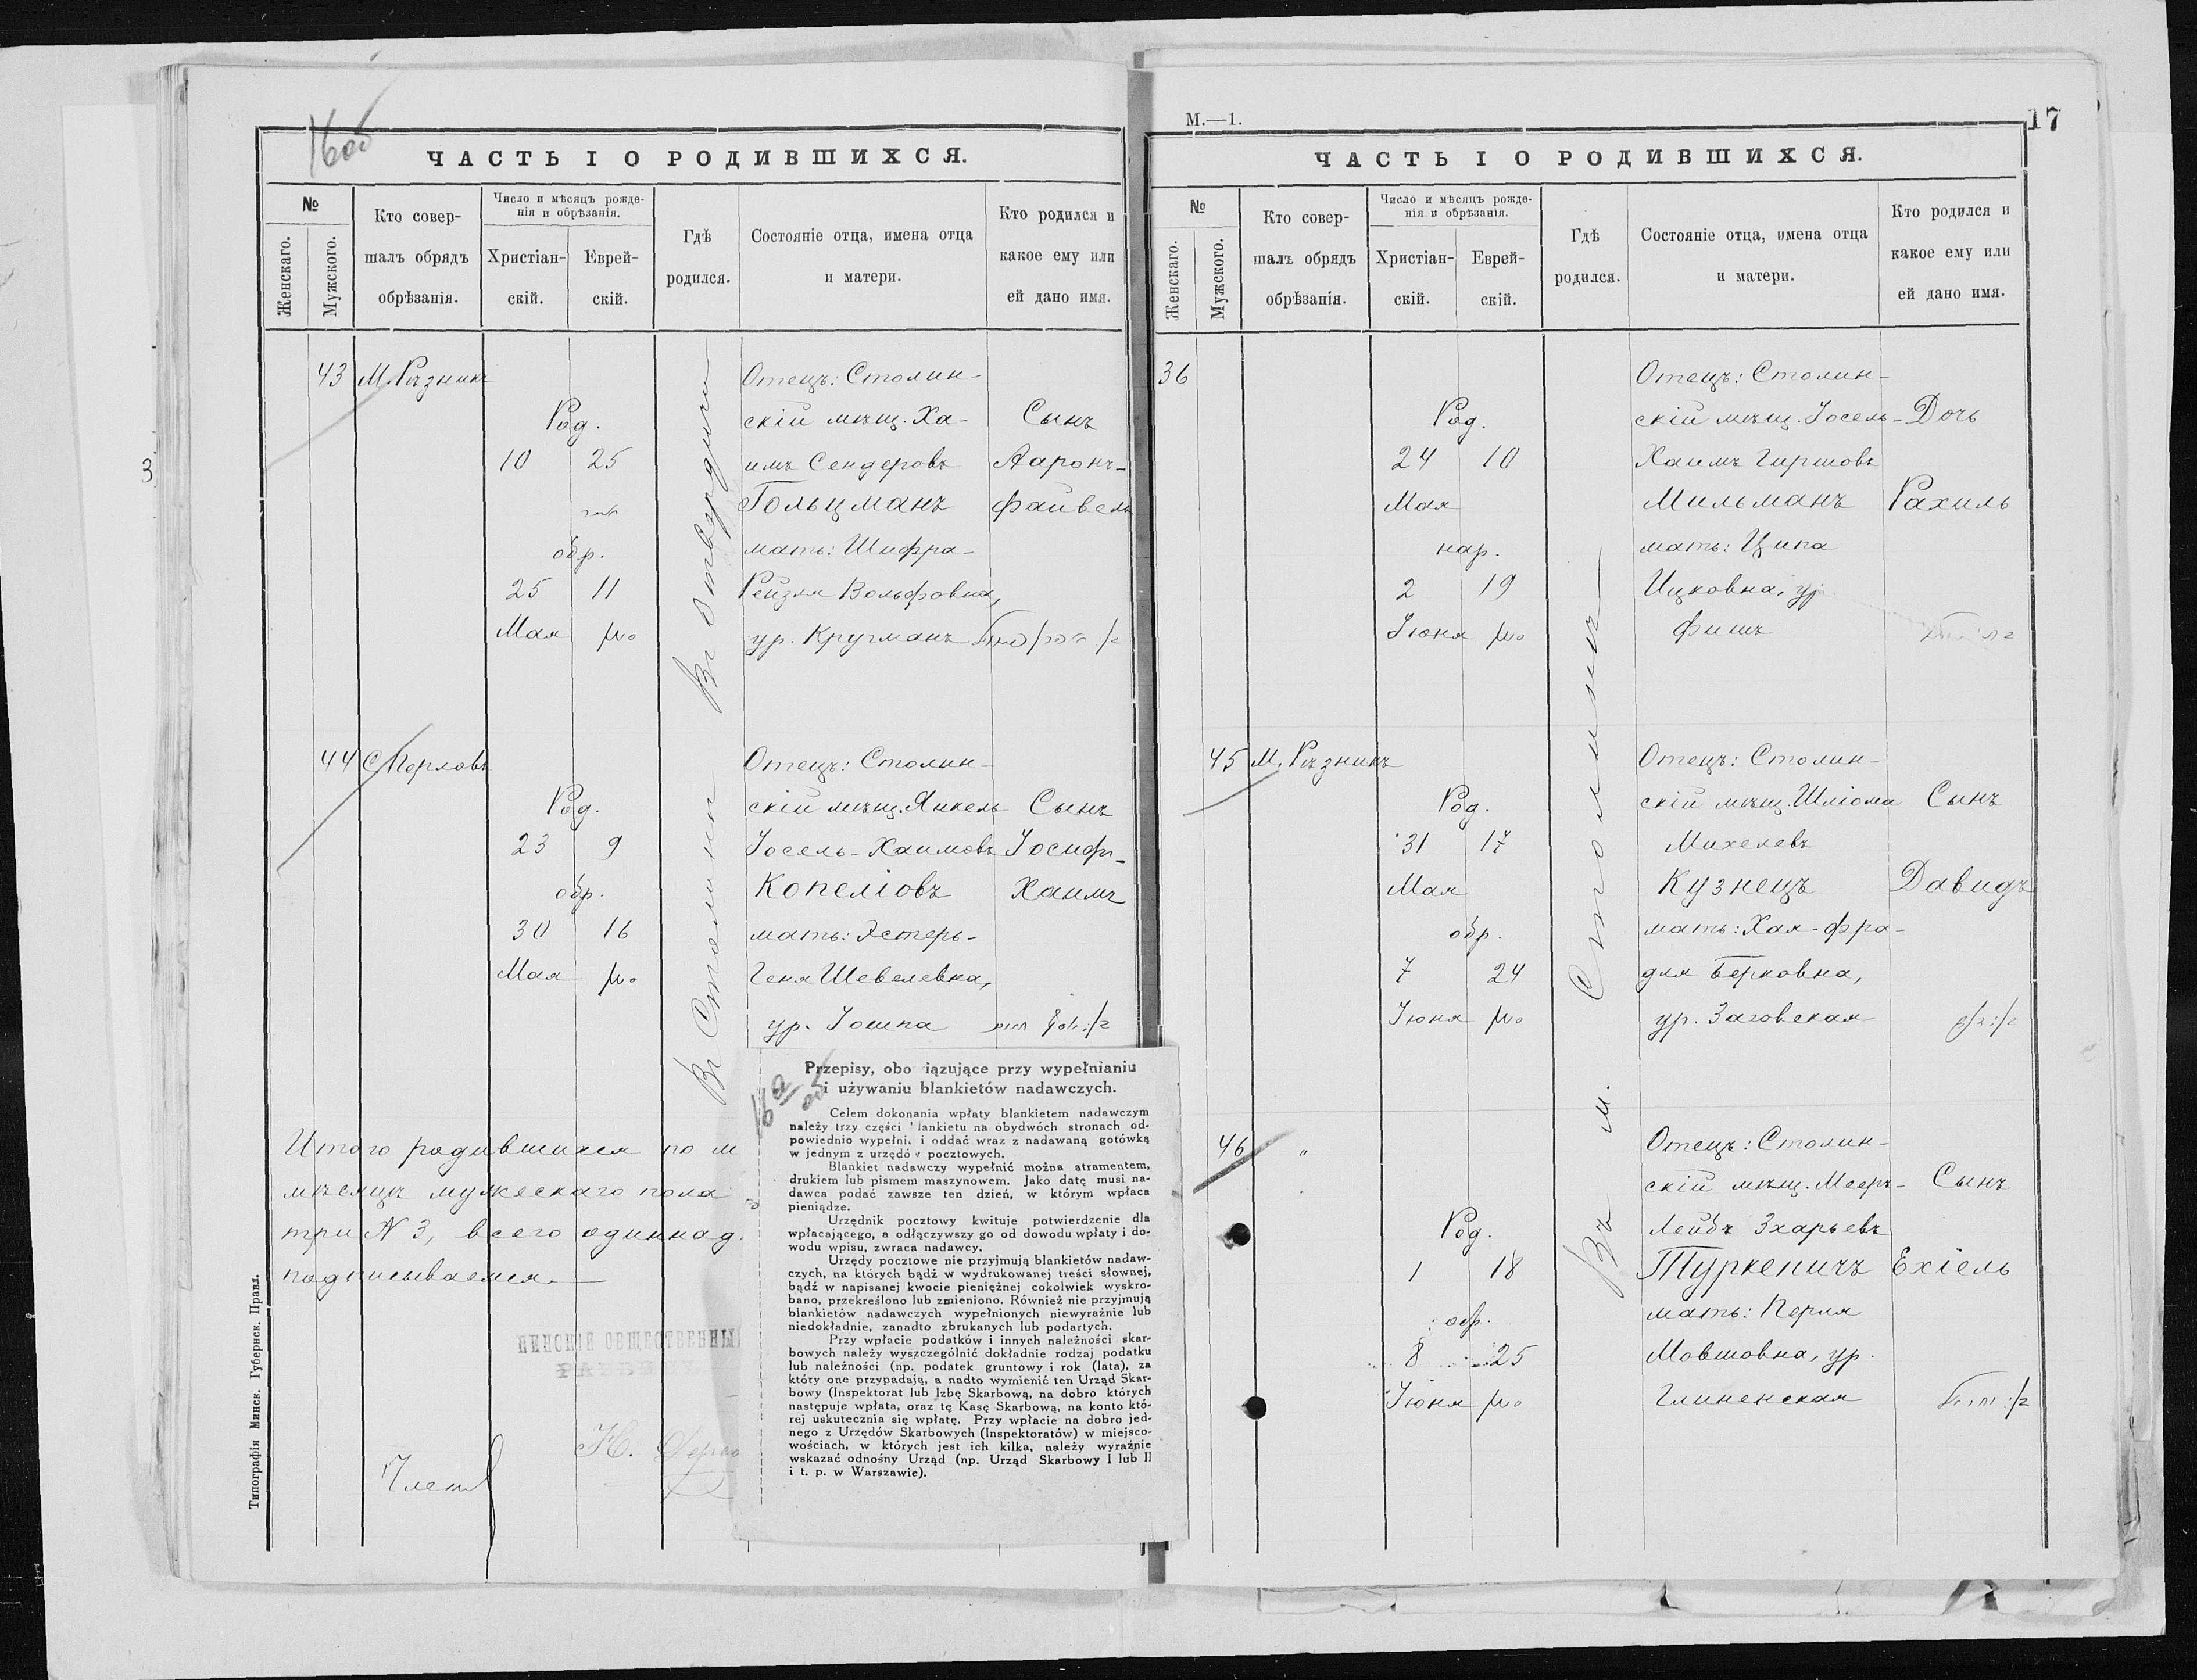 16об
ЧАСТЬ I О РОДИВШИХСЯ.
№
Женскаго.
Мужского.
Кто совер-
шалъ обрядъ
обрѣзанія.
Число и мѣсяцъ рожде-
нія и обрѣзанія.
Христіан-
скій.
Еврей-
скій.
Гдѣ
родился.
Состояніе отца, имена отца
и матери.
Кто родился и
какое ему или
ей дано имя.
43 М. Рѣзникъ
Отецъ: Столин-
Род.
скій мѣщ. Ха-
Сынъ
10 25
имъ Сендеровъ
Ааронъ-
Гольцманъ
Файвель
обр.
мать: Шифра-
25 11
Рейзля Вольфовна,
Мая
ур. Кругманъ
44 С. Перловъ
Отецъ: Столин-
Род.
скій мѣщ. Янкель
Сынъ
23 9
Іосель-Хаимовъ
Іосифъ-
обр.
Копеліовъ
Хаимъ
30 16
мать: Эстеръ-
Мая
Геня Шевелевна,
ур. Іошпа
Въ Столинѣ
Итого родившихся по м
мѣсяцъ мужескаго пола
три № 3, всего одиннад
подписываемся.
ПИНСКІЙ ОБЩЕСТВЕННЫ
Членъ
Типографія Минск. Губернск. Правл.
16а об
Przepisy, obo iązujące przy wypełnianiu
i używaniu blankietów nadawczych.
Celem dokonania wpłaty blankietem nadawczym
należy trzy części lankietu na obydwóch stronach od-
powiednio wypełni i oddać wraz z nadawaną gotówką
w jednym z urzędó pocztowych.
Blankiet nadawczy wypełnić można atramentem,
drukiem lub pismem maszynowem. Jako datę musi na-
dawca podać zawsze ten dzień, w którym wpłaca
pieniądze.
Urzędnik pocztowy kwituje potwierdzenie dla
wpłacającego, a odłączywszy go od dowodu wpłaty i do-
wodu wpisu, zwraca nadawcy.
Urzędy pocztowe nie przyjmują blankietów nadaw-
czych, na których bądź w wydrukowanej treści słownej,
bądź w napisanej kwocie pieniężnej cokolwiek wyskro-
bano, przekreślono lub zmieniono. Również nie przyjmują
blankietów nadawczych wypełnionych niewyraźnie lub
niedokładnie, zanadto zbrukanych lub podartych.
Przy wpłacie podatków i innych należności skar-
bowych należy wyszczególnić dokładnie rodzaj podatku
lub należności (np. podatek gruntowy i rok (lata), za
który one przypadają, a nadto wymienić ten Urząd Skar-
bowy (Inspektorat lub Izbę Skarbową, na dobro których
następuje wpłata, oraz tę Kasę Skarbową, na konto któ-
rej uskutecznia się wpłatę. Przy wpłacie na dobro jed-
nego z Urzędów Skarbowych (Inspektoratów) w miejsco-
wościach, w których jest ich kilka, należy wyraźnie
wskazać odnośny Urząd (np. Urząd Skarbowy I lub II
i t. p. w Warszawie).
М.—1.
17
ЧАСТЬ I О РОДИВШИХСЯ.
№
Женскаго.
Мужского.
Кто совер-
шалъ обрядъ
обрѣзанія.
Число и мѣсяцъ рожде-
нія и обрѣзанія.
Христіан-
скій.
Еврей-
скій.
Гдѣ
родился.
Состояніе отца, имена отца
и матери.
Кто родился и
какое ему или
ей дано имя.
36
Отецъ: Столин-
Род.
скій мѣщ. Іосель-
Дочь
24 10
Хаимъ Гиршовъ
Мая
Мильманъ
Рахиль
нар.
мать: Ципа
2 19
Ицковна, ур
Іюня
Фишъ
45 М. Рѣзникъ
Отецъ: Столин-
Род.
скій мѣщ. Шліома
Сынъ
31 17
Михелевъ
Мая
Кузнецъ
Давидъ
обр.
мать: Хая-Фра-
7 24
для Берковна,
Іюня
ур. Заговская
Въ м. Столинѣ
46 "
Отецъ: Столин-
скій мѣщ. Мееръ-
Сынъ
Род.
Лейбъ Зхарьевъ
1 18
Туркеничъ
Ехіель
обр.
мать: Перля
8 25
Мовшовна, ур.
Іюня
Глиненская